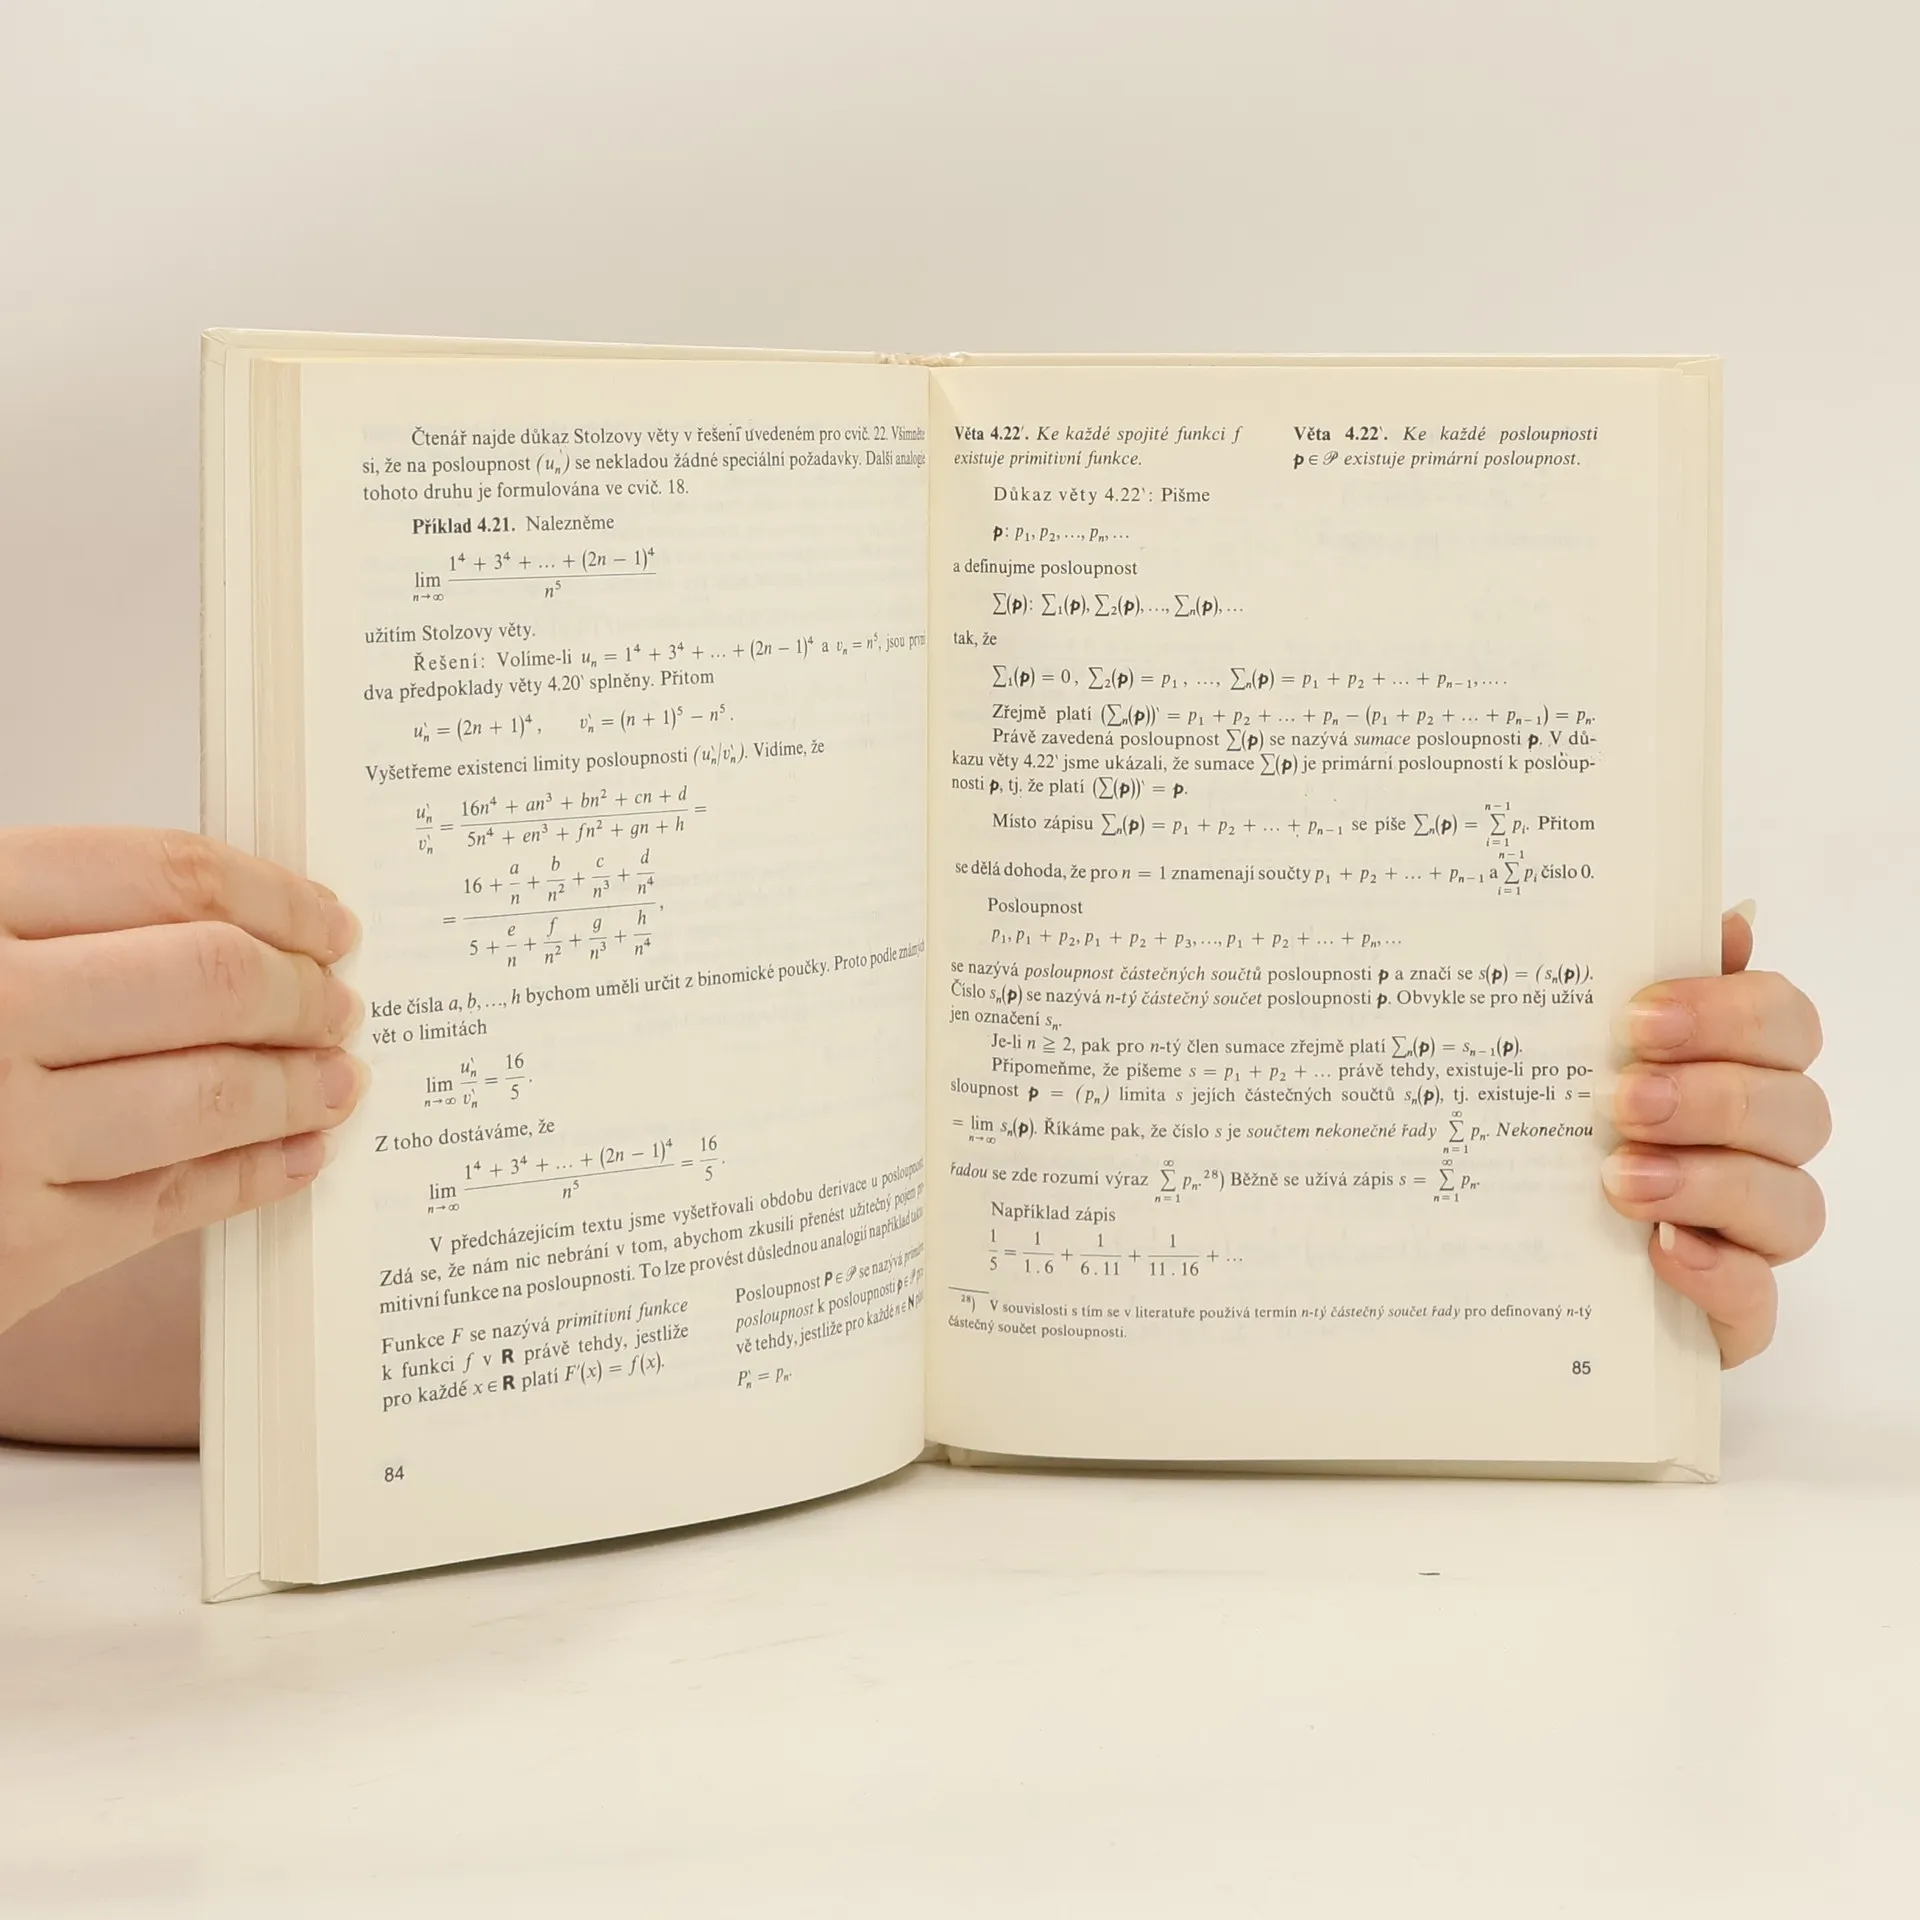 Čtenář najde důkaz Stolzovy věty v řešení uvedeném pro cvič. 22. Všimněte
si, že na posloupnost (uₙ) se nekladou žádné speciální požadavky. Další analogie
tohoto druhu je formulována ve cvič. 18.
Příklad 4.21. Nalezněme
lim n→∞ (1⁴ + 3⁴ + ... + (2n − 1)⁴) / n⁵
užitím Stolzovy věty.
Řešení: Volíme-li uₙ = 1⁴ + 3⁴ + ... + (2n − 1)⁴ a vₙ = n⁵, jsou první
dva předpoklady věty 4.20‵ splněny. Přitom
u‵ₙ = (2n + 1)⁴, v‵ₙ = (n + 1)⁵ − n⁵.
Vyšetřeme existenci limity posloupnosti (u‵ₙ/v‵ₙ). Vidíme, že
u‵ₙ / v‵ₙ = (16n⁴ + an³ + bn² + cn + d) / (5n⁴ + en³ + fn² + gn + h) =
= (16 + a/n + b/n² + c/n³ + d/n⁴) / (5 + e/n + f/n² + g/n³ + h/n⁴),
kde čísla a, b, ..., h bychom uměli určit z binomické poučky. Proto podle známých
vět o limitách
lim n→∞ u‵ₙ / v‵ₙ = 16/5.
Z toho dostáváme, že
lim n→∞ (1⁴ + 3⁴ + ... + (2n − 1)⁴) / n⁵ = 16/5.
V předcházejícím textu jsme vyšetřovali obdobu derivace u posloupností
Zdá se, že nám nic nebrání v tom, abychom zkusili přenést užitečný pojem
mitivní funkce na posloupnosti. To lze provést důslednou analogií například
Funkce F se nazývá primitivní funkce
k funkci f v R právě tehdy, jestliže
pro každé x ∈ R platí F′(x) = f(x).
Posloupnost P ∈ 𝒫 se nazývá
posloupnost k posloupnosti p ∈ 𝒫
vě tehdy, jestliže pro každé n ∈ N
P‵ₙ = pₙ.
84
Věta 4.22′. Ke každé spojité funkci f
existuje primitivní funkce.
Věta 4.22‵. Ke každé posloupnosti
p ∈ 𝒫 existuje primární posloupnost.
Důkaz věty 4.22‵: Pišme
p: p₁, p₂, ..., pₙ, ...
a definujme posloupnost
∑(p): ∑₁(p), ∑₂(p), ..., ∑ₙ(p), ...
tak, že
∑₁(p) = 0, ∑₂(p) = p₁, ..., ∑ₙ(p) = p₁ + p₂ + ... + pₙ₋₁, ....
Zřejmě platí (∑ₙ(p))‵ = p₁ + p₂ + ... + pₙ − (p₁ + p₂ + ... + pₙ₋₁) = pₙ.
Právě zavedená posloupnost ∑(p) se nazývá sumace posloupnosti p. V dů-
kazu věty 4.22‵ jsme ukázali, že sumace ∑(p) je primární posloupností k posloup-
nosti p, tj. že platí (∑(p))‵ = p.
Místo zápisu ∑ₙ(p) = p₁ + p₂ + ... + pₙ₋₁ se píše ∑ₙ(p) = ∑_{i=1}^{n−1} pᵢ. Přitom
se dělá dohoda, že pro n = 1 znamenají součty p₁ + p₂ + ... + pₙ₋₁ a ∑_{i=1}^{n−1} pᵢ číslo 0.
Posloupnost
p₁, p₁ + p₂, p₁ + p₂ + p₃, ..., p₁ + p₂ + ... + pₙ, ...
se nazývá posloupnost částečných součtů posloupnosti p a značí se s(p) = (sₙ(p)).
Číslo sₙ(p) se nazývá n-tý částečný součet posloupnosti p. Obvykle se pro něj užívá
jen označení sₙ.
Je-li n ≧ 2, pak pro n-tý člen sumace zřejmě platí ∑ₙ(p) = sₙ₋₁(p).
Připomeňme, že píšeme s = p₁ + p₂ + ... právě tehdy, existuje-li pro po-
sloupnost p = (pₙ) limita s jejích částečných součtů sₙ(p), tj. existuje-li s =
= lim n→∞ sₙ(p). Říkáme pak, že číslo s je součtem nekonečné řady ∑_{n=1}^{∞} pₙ. Nekonečnou
řadou se zde rozumí výraz ∑_{n=1}^{∞} pₙ.²⁸) Běžně se užívá zápis s = ∑_{n=1}^{∞} pₙ.
Například zápis
1/5 = 1/1.6 + 1/6.11 + 1/11.16 + ...
²⁸) V souvislosti s tím se v literatuře používá termín n-tý částečný součet řady pro definovaný n-tý
částečný součet posloupnosti.
85